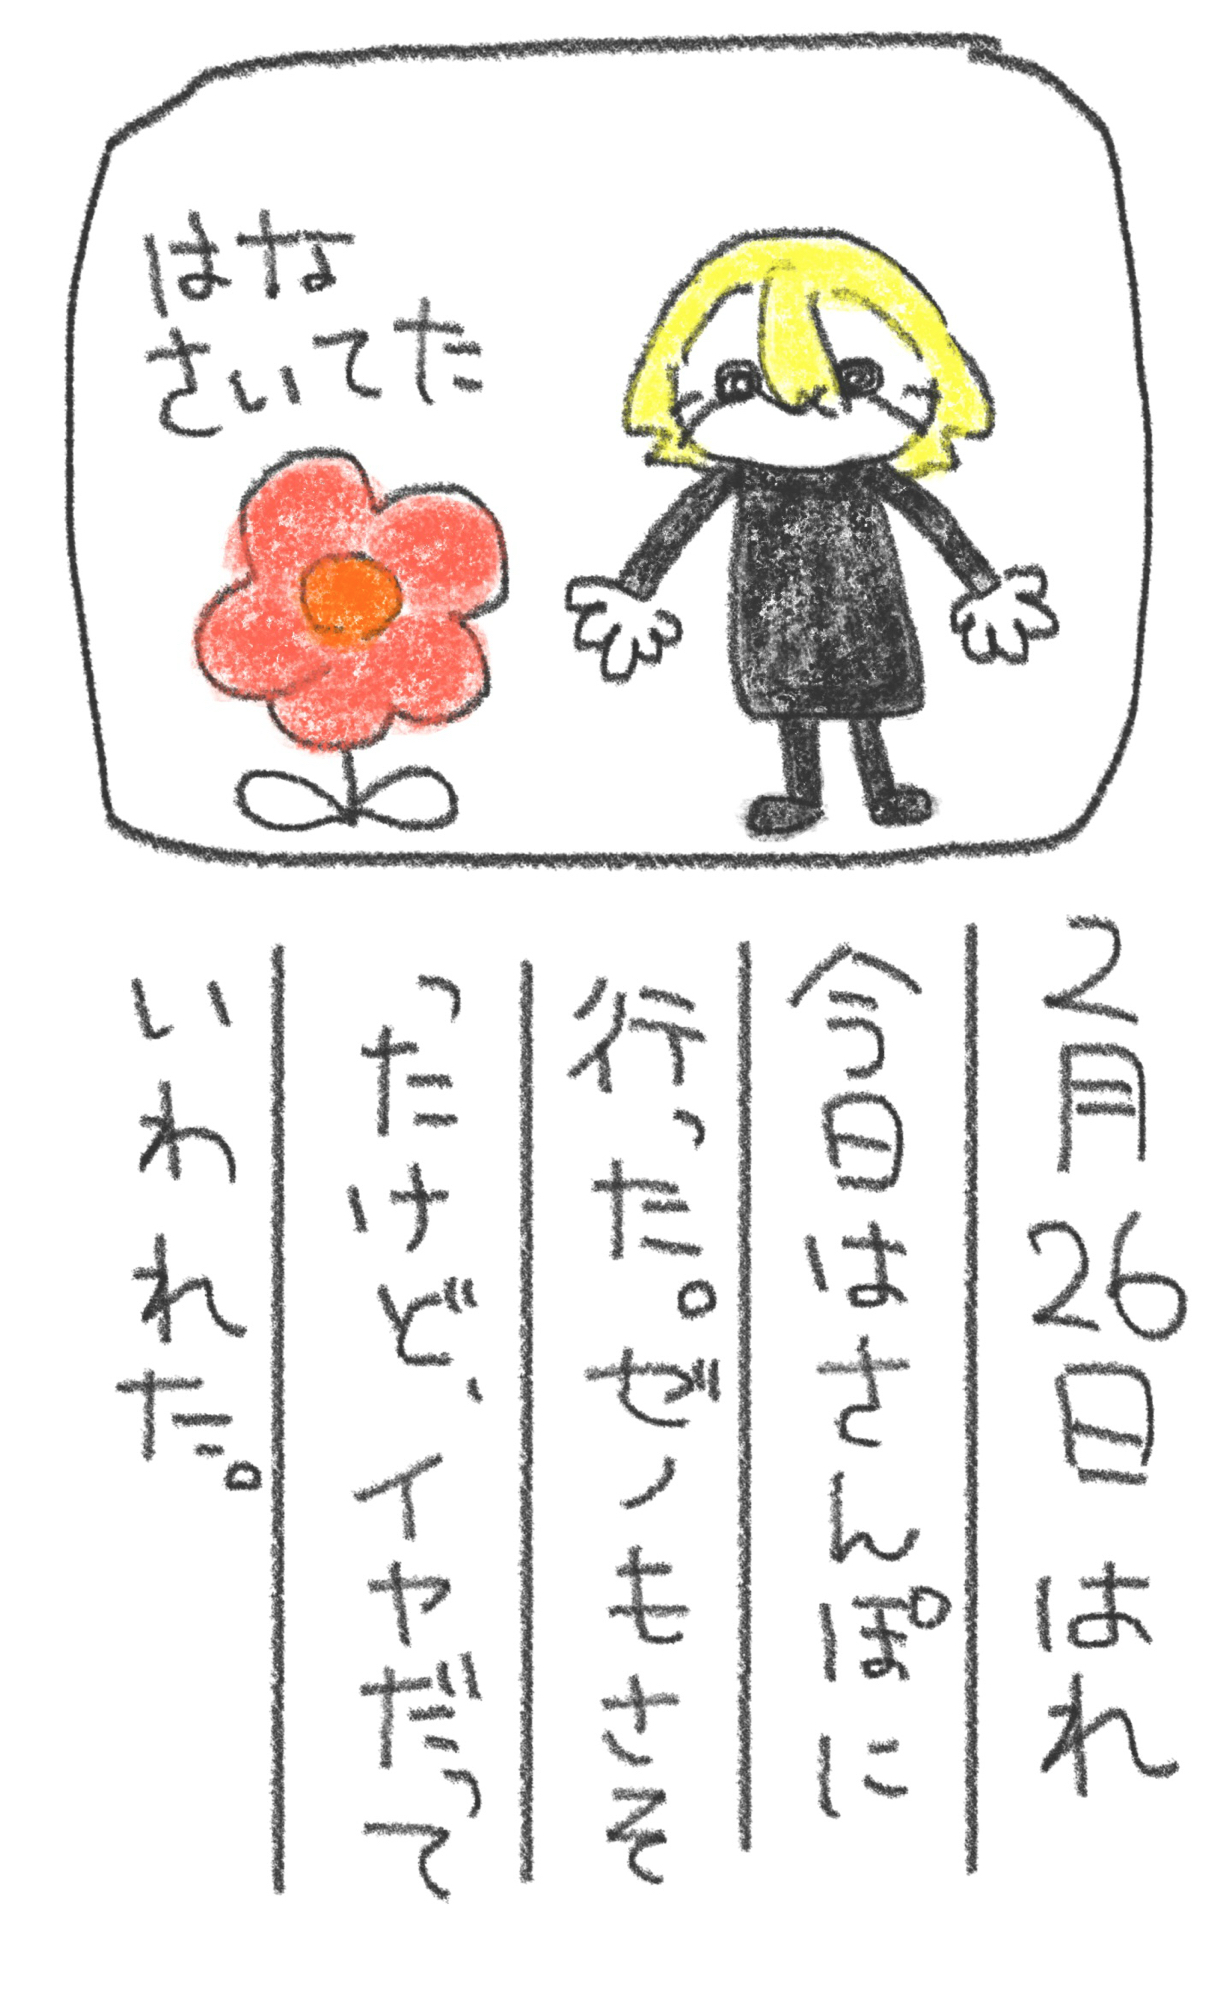 はな
さいてた
2月26日 はれ
今日はさんぽに
行った。ゼノもさそ
ったけど、イヤだって
いわれた。